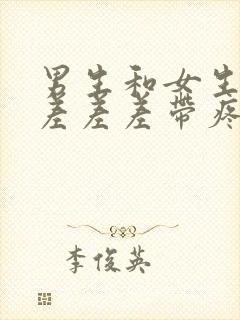 男生和女生
差差差带疼
李俊英